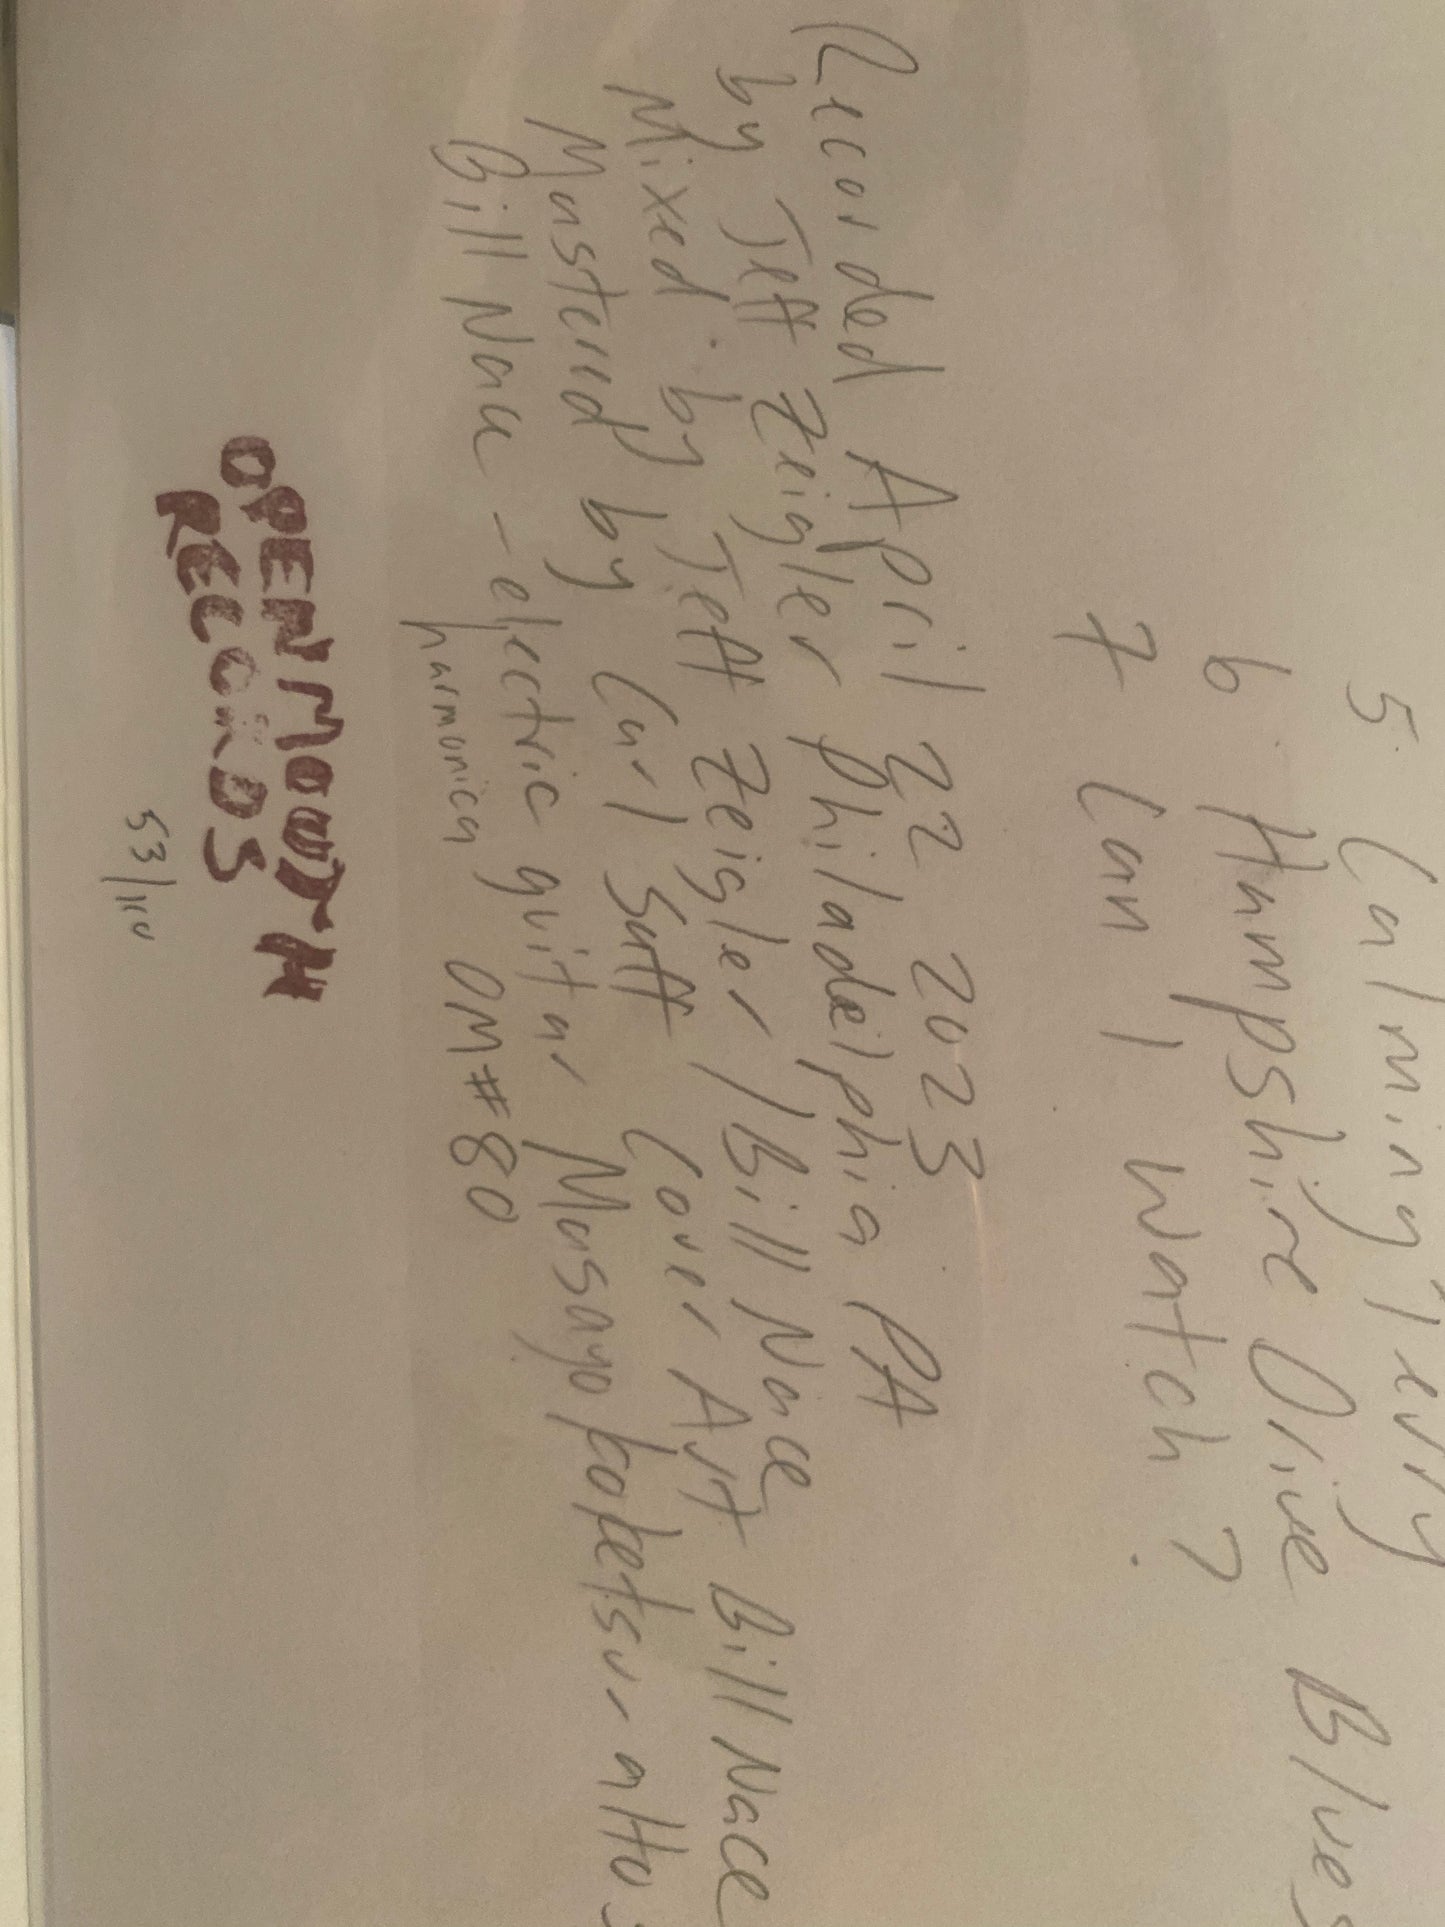 5. Calming Terry
6 Hampshire Drive Blues
7 Can I watch?
Recorded April 22 2023
by Jeff Zeigler Philadelphia PA
Mixed by Jeff Zeigler / Bill Nace
Mastered by Carl Saff Cover Art Bill Nace
Bill Nace - electric guitar Masayo koketsu - alto
harmonica OM#80
OPEN MOUTH
RECORDS
53/110